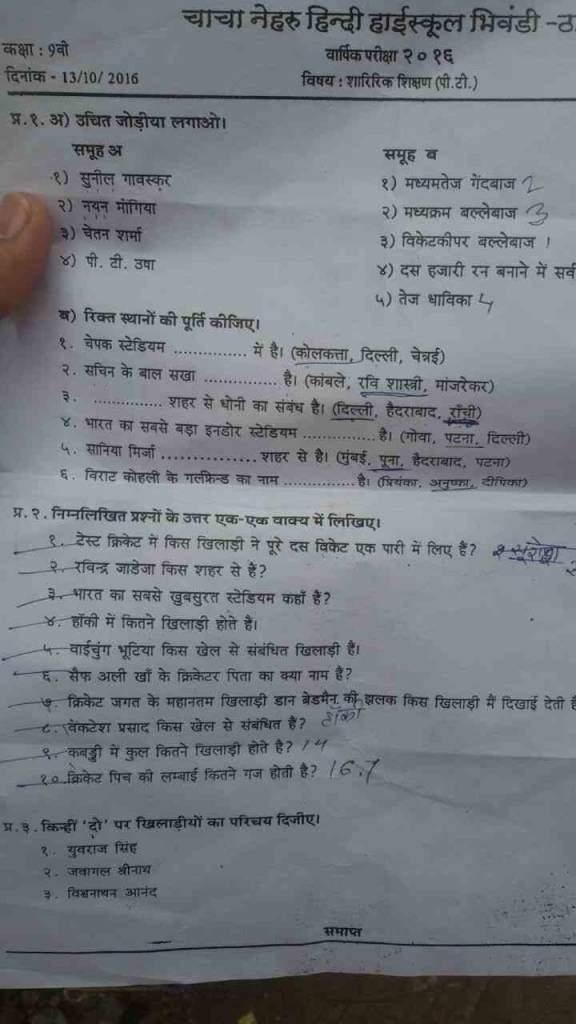 चाचा नेहरु हिन्दी हाईस्कूल भिवंडी -ठा
कक्षा : 9वी
वार्षिक परीक्षा २०१६
दिनांक - 13/10/ 2016
विषय : शारिरिक शिक्षण (पी.टी.)
प्र.१. अ) उचित जोड़ीया लगाओ।
समूह अ
समूह ब
१) सुनील गावस्कर
१) मध्यमतेज गेंदबाज 2
२) नयन मोंगिया
२) मध्यक्रम बल्लेबाज 3
३) चेतन शर्मा
३) विकेटकीपर बल्लेबाज 1
४) पी. टी. उषा
४) दस हजारी रन बनाने में सर्व
५) तेज धाविका 4
ब) रिक्त स्थानों की पूर्ति कीजिए।
१. चेपक स्टेडियम .............. में है। (कोलकत्ता, दिल्ली, चेन्नई)
२. सचिन के बाल सखा .............. है। (कांबले, रवि शास्त्री, मांजरेकर)
३. .............. शहर से धोनी का संबंध है। (दिल्ली, हैदराबाद, राँची)
४. भारत का सबसे बड़ा इनडोर स्टेडियम .............. है। (गोवा, पटना, दिल्ली)
५. सानिया मिर्जा .................. शहर से है। (मुंबई, पूना, हैदराबाद, पटना)
६. विराट कोहली के गर्लफ्रेन्ड का नाम .............. है। (प्रियंका, अनुष्का, दीपिका)
प्र.२. निम्नलिखित प्रश्नों के उत्तर एक-एक वाक्य में लिखिए।
१. टेस्ट क्रिकेट में किस खिलाड़ी ने पूरे दस विकेट एक पारी में लिए हैं?
२. रविन्द्र जाडेजा किस शहर से हैं?
३. भारत का सबसे खुबसुरत स्टेडियम कहाँ हैं?
४. हॉकी में कितने खिलाड़ी होते है।
५. वाईचुंग भूटिया किस खेल से संबंधित खिलाड़ी है।
६. सैफ अली खाँ के क्रिकेटर पिता का क्या नाम है?
७. क्रिकेट जगत के महानतम खिलाड़ी डान ब्रेडमैन की झलक किस खिलाड़ी मैं दिखाई देती है
८. वेंकटेश प्रसाद किस खेल से संबंधित हैं? हॉकी
९. कबड्डी में कुल कितने खिलाड़ी होते है? 14
१०. क्रिकेट पिच की लम्बाई कितने गज होती है? 16.7
प्र.३. किन्हीं 'दो' पर खिलाड़ीयों का परिचय दिजीए।
१. युवराज सिंह
२. जवागल श्रीनाथ
३. विश्वनाथन आनंद
समाप्त